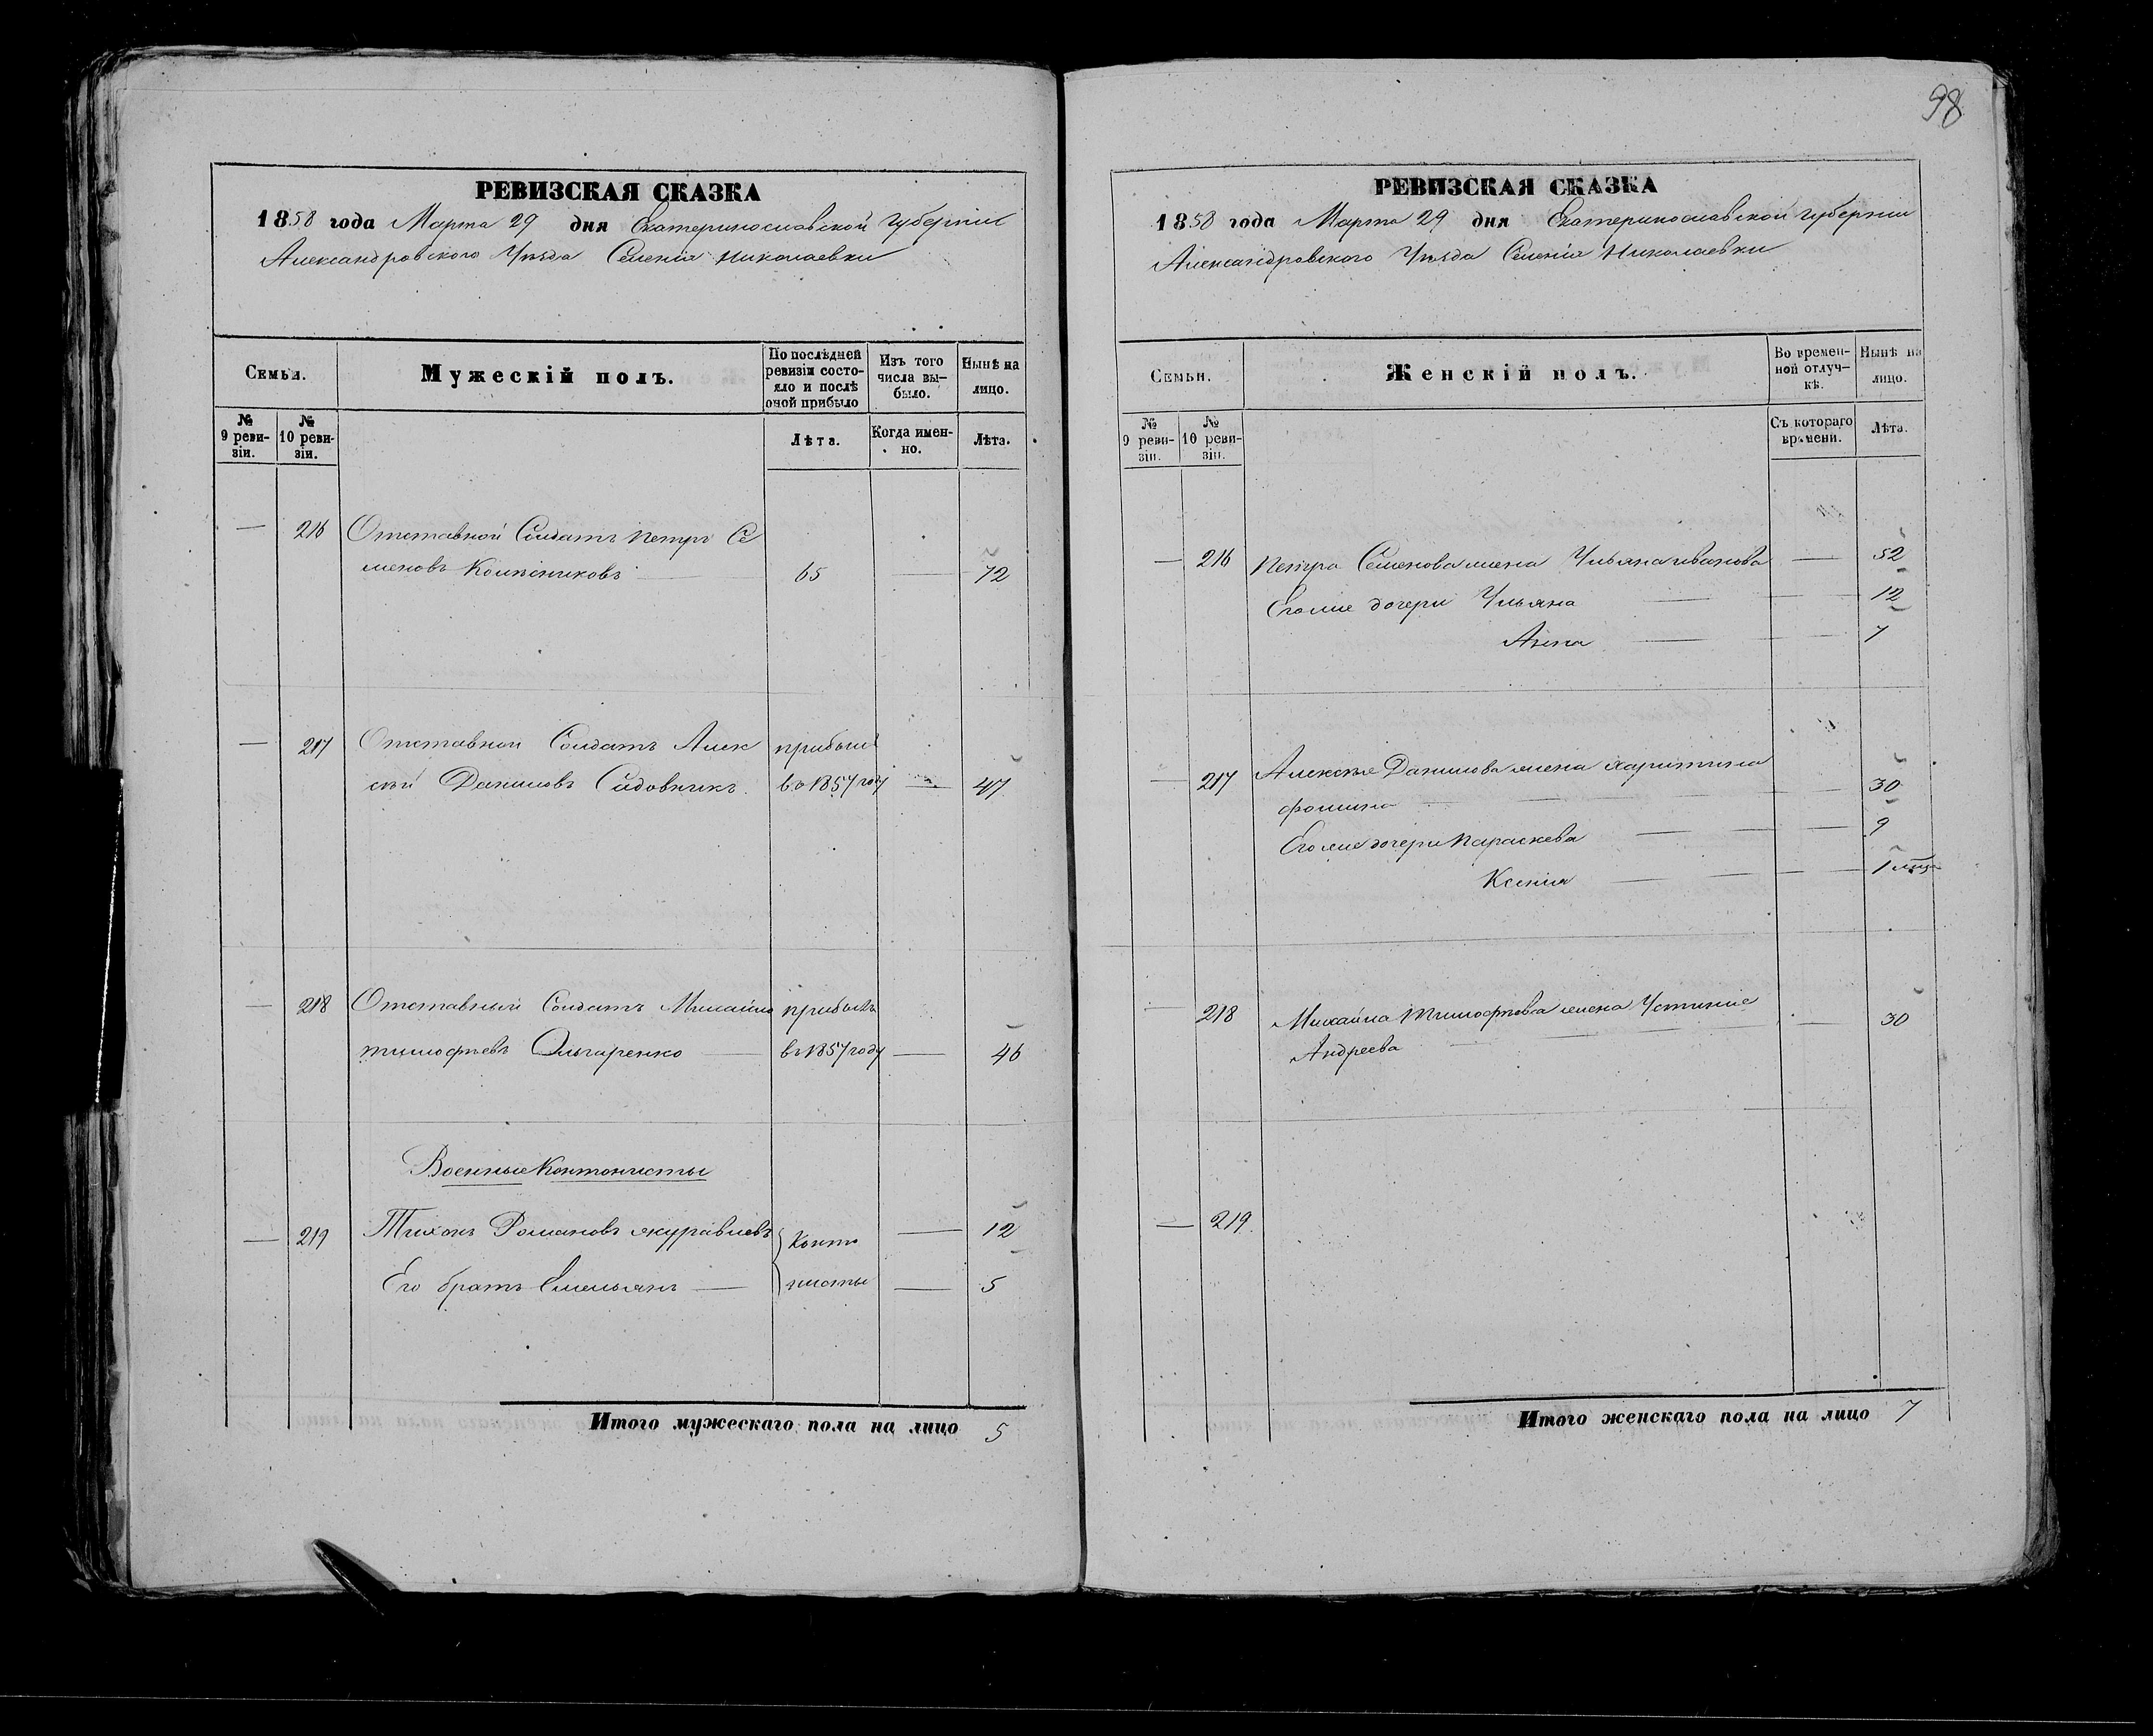 98
РЕВИЗСКАЯ СКАЗКА
1858 года Марта 29 дня Екатеринославской Губерніи
Александровского Уѣзда Селенія Николаевки
Семьи.
Мужескій полъ.
По послѣдней ревизіи состояло и послѣ оной прибыло
Изъ того числа выбыло.
Нынѣ на лицо.
№ 9 ревизіи.
№ 10 ревизіи.
Лѣта.
Когда именно.
Лѣта.
— 216 Отставной Солдатъ Петръ Се
меновъ 65 — 72
— 217 Отставной Солдатъ Алек прибылъ
сѣй Даниловъ Садовникъ в 1857 году — 47
— 218 Отставный Солдатъ Михайло прибылъ
Тимофѣевъ въ 1857 году — 46
Военные Кантонисты
— 219 Тихонъ Романовъ Журавлевъ Канто — 12
Его братъ Емельянъ — нисты — 5
Итого мужескаго пола на лицо 5
РЕВИЗСКАЯ СКАЗКА
1858 года Марта 29 дня Екатеринославской Губерніи
Александровского Уѣзда Селенія Николаевки
Семьи.
Женскій полъ.
Во временной отлучкѣ.
Нынѣ на лицо.
№ 9 ревизіи.
№ 10 ревизіи.
Съ котораго времени.
Лѣта.
— 216 Петра Семенова жена Ульяна Иванова — 52
Его же дочери Ульяна — 12
Анна — 7
— 217 Алексѣя Данилова жена Харитина
Фомина — 30
Его же дочери Параскева — 9
Ксенія — 1
— 218 Михайла Тимофѣева жена Устинія — 30
Андреева
— 219.
Итого женскаго пола на лицо 7